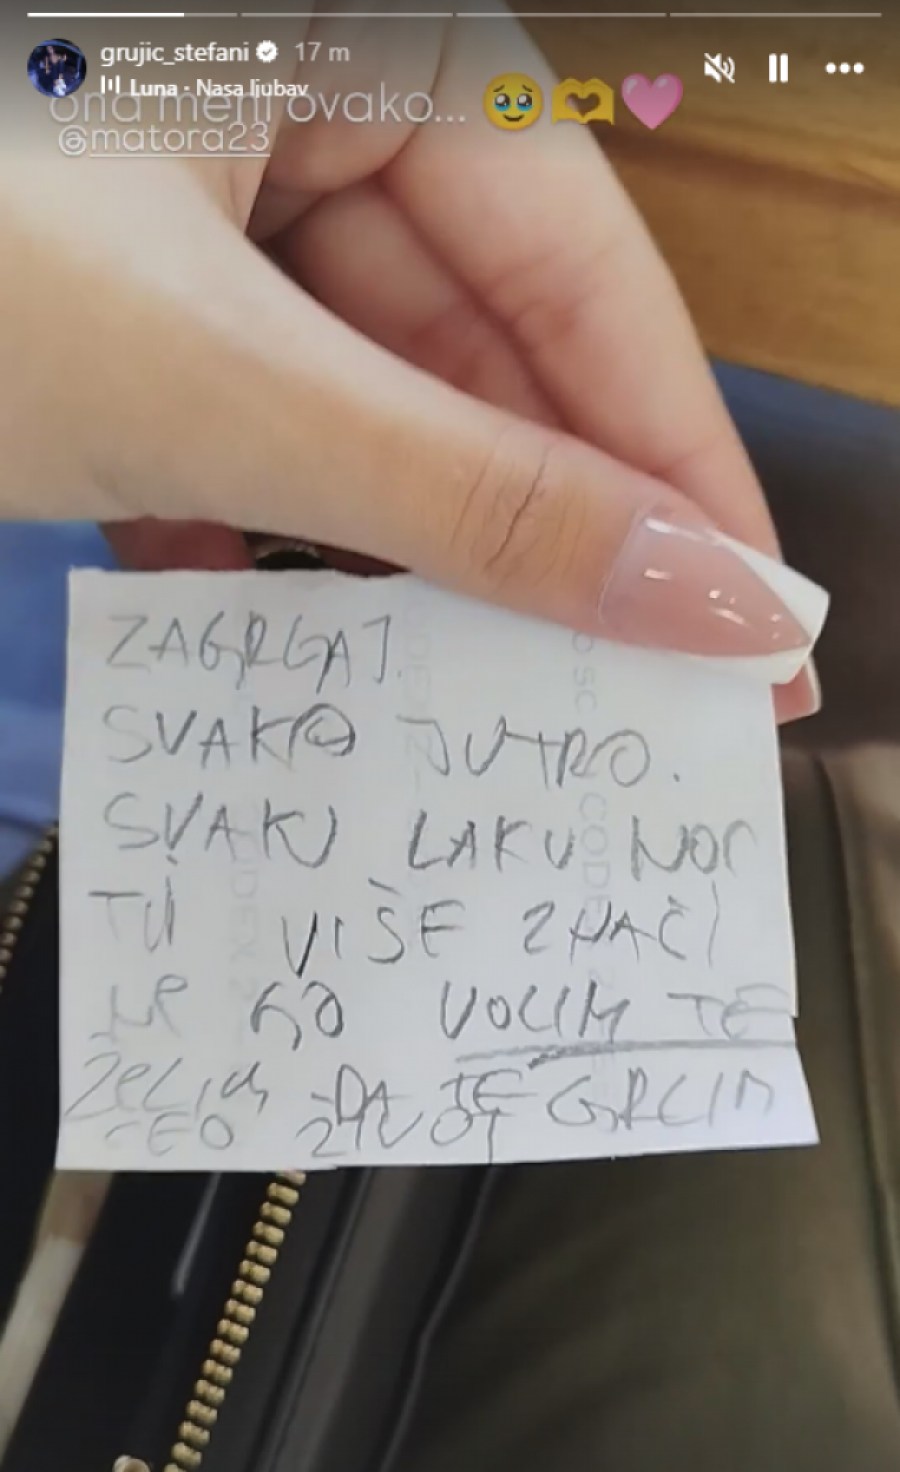 grujic_stefani 17 m
Luna · Nasa ljubav
ona meni ovako... 🥹🫶🩷
@matora23
ZAGRGAJ
SVAKO JUTRO.
SVAKI LAKU NOC
TÚ VIŠE ZNAČI
GO VOLIM TE
DA TE GRLIM
CEO ŽIVOT